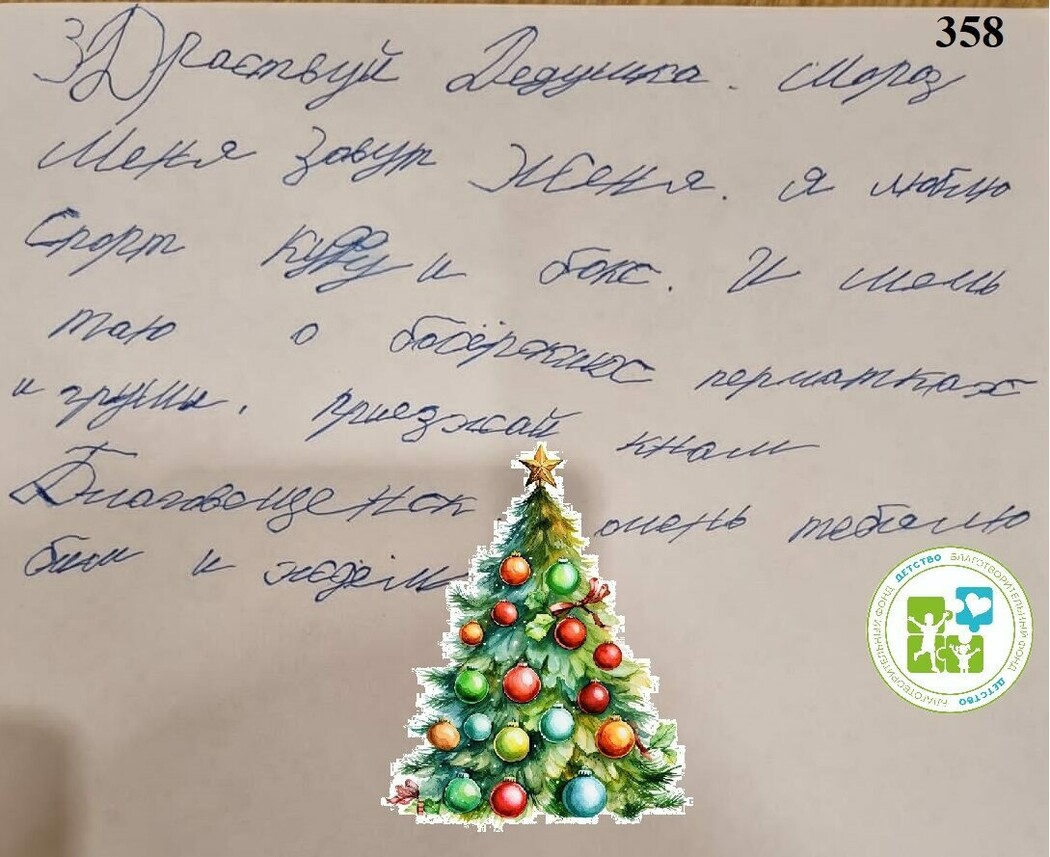 358
ЗДраствуй Дедушка. Мороз
Меня Завут Женя. я люблю
Спорт и бокс. И мечь
таю о боксёрских перчатках
и груши. приезжай кнам
Благовещенск очень тебялю
бим и ждём
ДЕТСТВО БЛАГОТВОРИТЕЛЬНЫЙ ФОНД ДЕТСТВО БЛАГОТВОРИТЕЛЬНЫЙ ФОНД